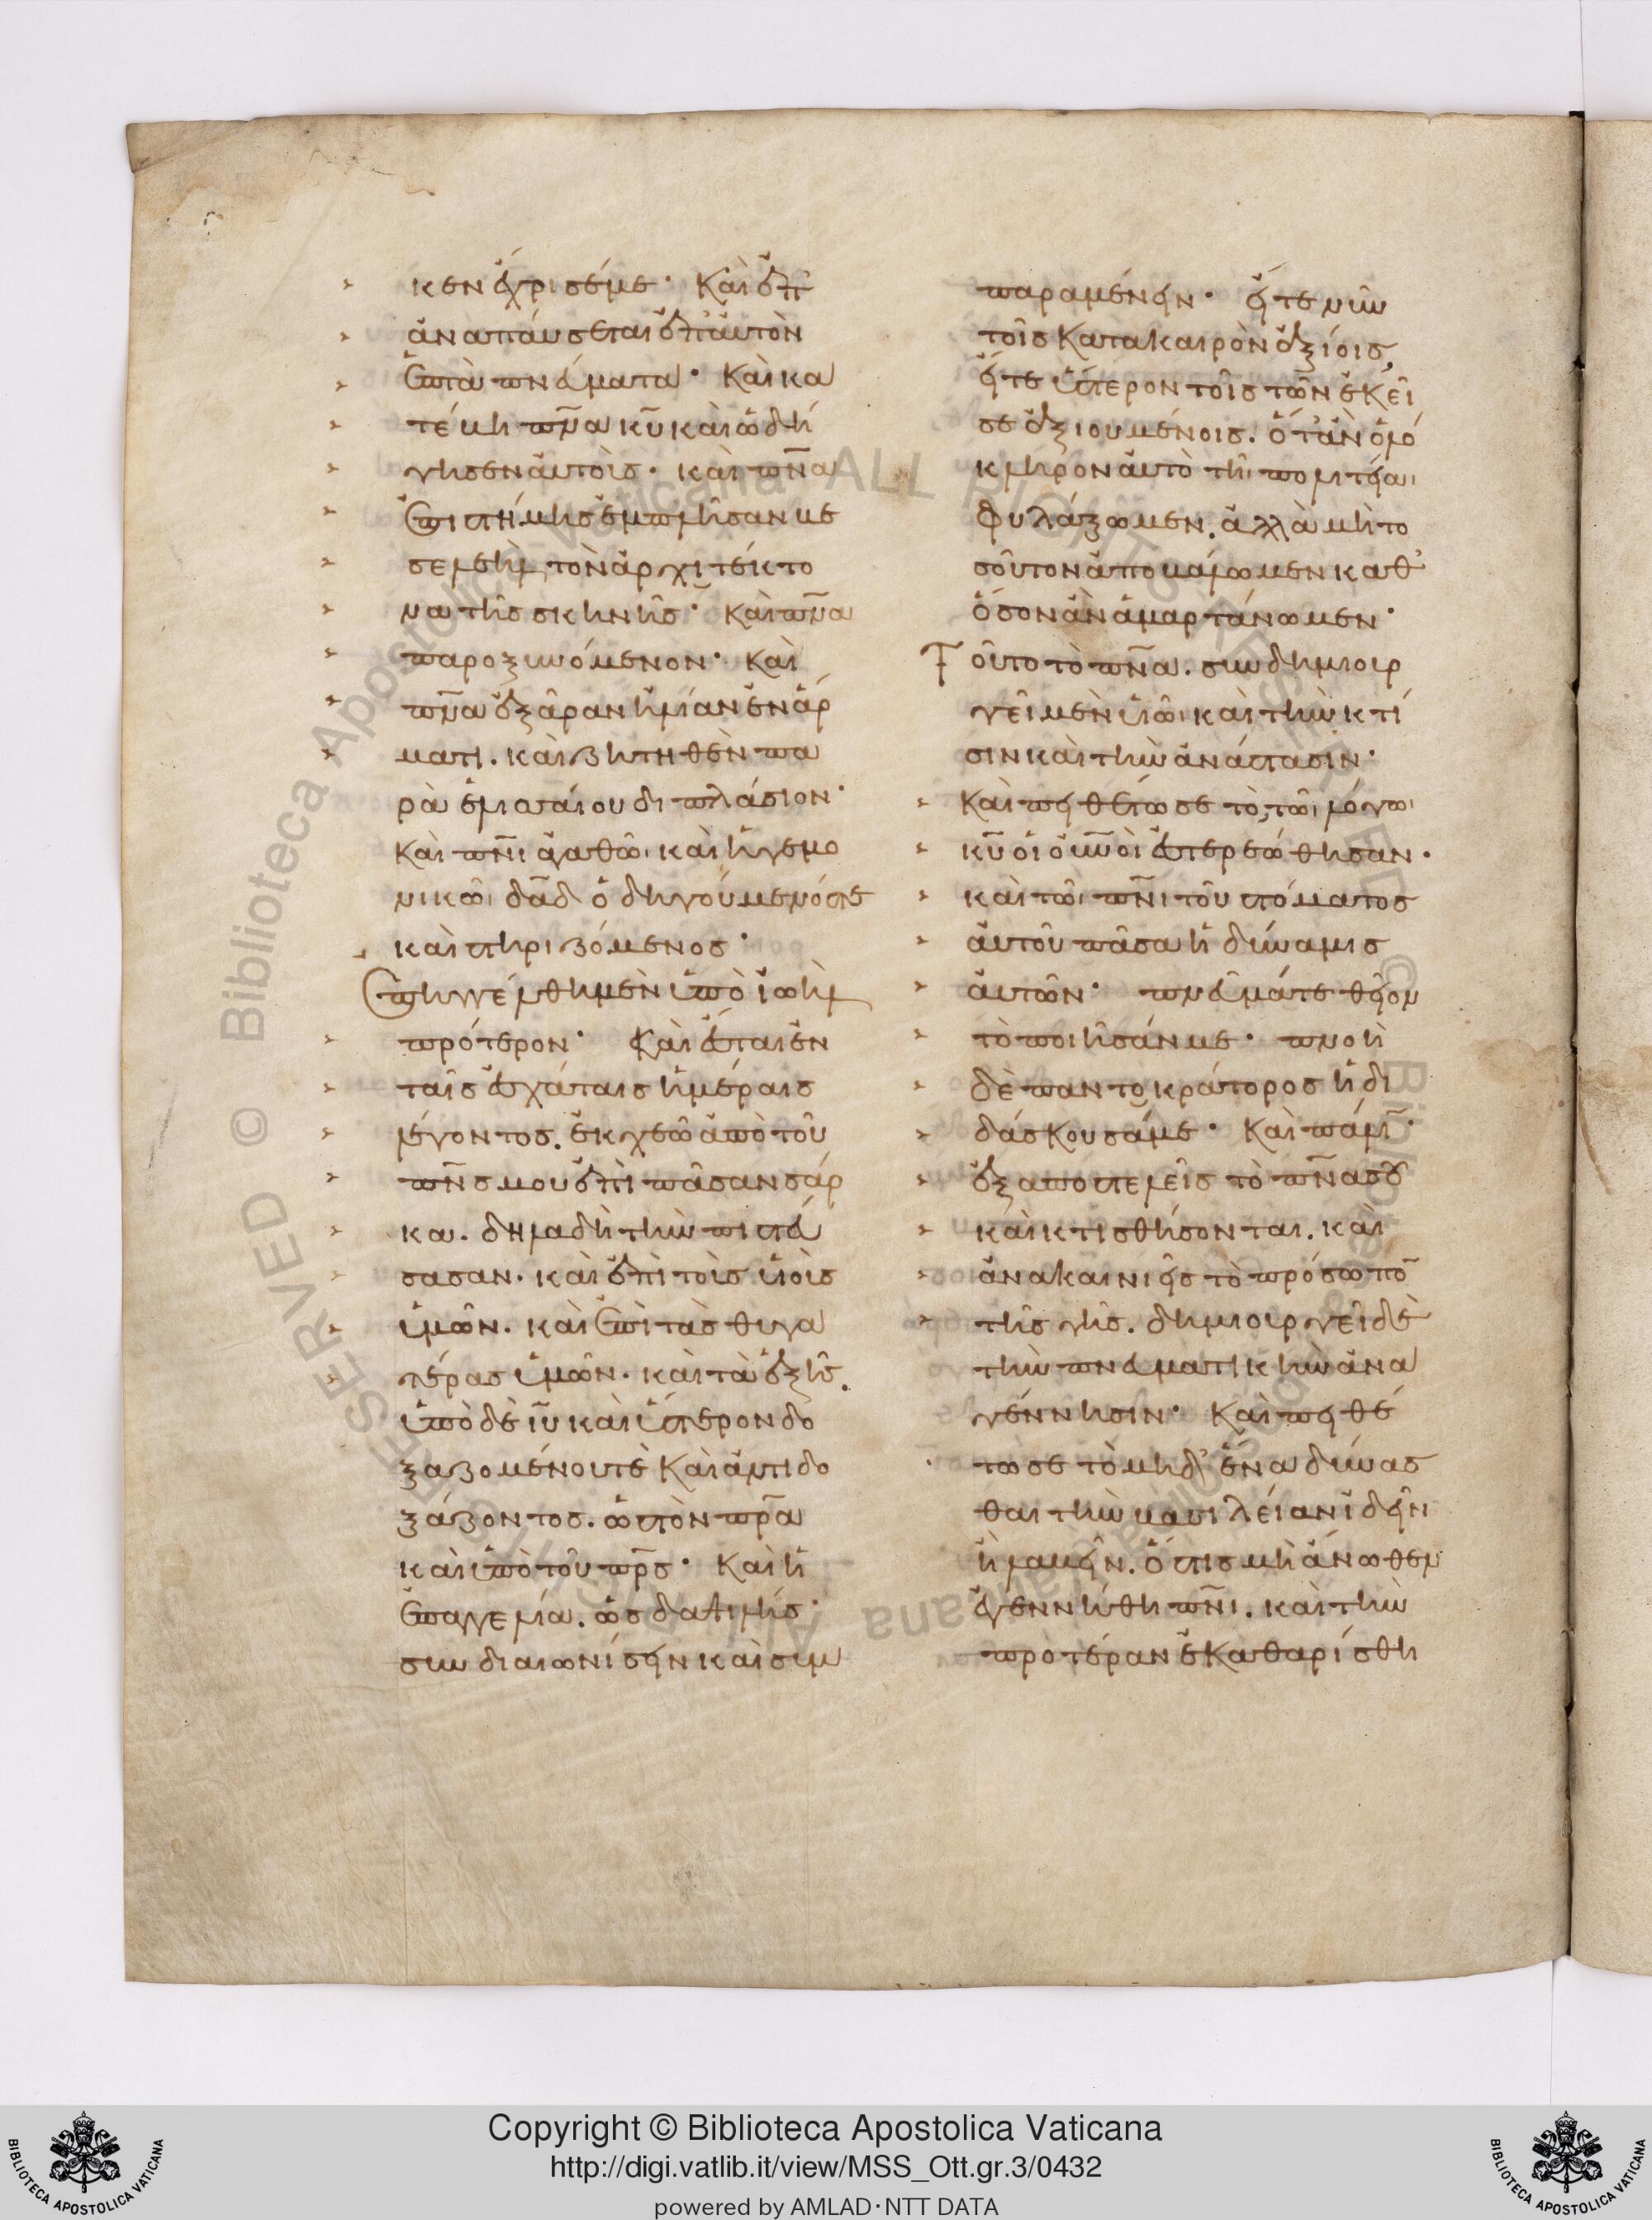 κεν ἔχρισέμε· Καὶ ἐπ
ἀναπαύσεται ἐπ' αὐτὸν
ἑπτὰ πνεύματα· Καὶ κα
τέβη πν̅α κ̅υ καὶ ὡδή
γησεν αὐτοὺς· καὶ πν̅α
ἐπιστήμης ἐμπλῆσαν βε
σελεὴλ τὸν ἀρχιτέκτο
να τῆς σκηνῆς· Καὶ πν̅α
παροξυνόμενον· Καὶ
πν̅α ἐξᾶραν ἠλίαν ἐν ἅρ
ματι. καὶ ζητηθὲν πα
ρὰ ἐλισσαίου διπλάσιον·
Καὶ πν̅ι ἀγαθῶι καὶ ἡγεμο
νικῶι δα̅δ ὁδηγούμενός τε
καὶ στηριζόμενος·
ἐπηγγέλθη μὲν ὑπὸ ἰωὴλ
πρότερον· Καὶ ἔσται ἐν
ταῖς ἐσχάταις ἡμέραις
λέγοντος. ἐκχεῶ ἀπὸ τοῦ
πν̅ς μου ἐπὶ πᾶσαν σάρ
κα. δηλαδὴ τὴν πιστεύ
σασαν. καὶ ἐπὶ τοὺς υἱοὺς
ὑμῶν. καὶ ἐπὶ τὰς θυγα
τέρας ὑμῶν. καὶ τὰ ἐξῆς.
ὑπὸ δὲ ι̅υ καὶ ὕστερον δο
ξαζομένου τὲ Καὶ ἀντιδο
ξάζοντος. ὡς τὸν πρ̅α
καὶ ὑπὸ τοῦ πρ̅ς· Καὶ ἡ
ἐπαγγελία. ὡς δαψιλής·
συνδιαιωνίσειν καὶ συμ
παραμένειν· εἴτε νῦν
τοῖς Κατα καιρὸν ἀξίοις,
εἴτε ὕστερον τοῖς τῶν ἐκεῖ
σε ἀξιουμένοις. ὅτ' ἂν ὁλό
κληρον αὐτὸ τῆι πολιτείαι
φυλάξωμεν. ἀλλὰ μὴ το
σοῦτον ἀποβάλωμεν καθ'
ὅσον ἂν ἁμαρτάνωμεν·
Τοῦτο τὸ πν̅α. συνδημιουρ
γεῖ μὲν υἱῶι καὶ τὴν κτί
σιν καὶ τὴν ἀνάστασιν·
Καὶ πειθέτω σε τὸ, τῶι λόγωι
κ̅υ οἱ ου̅νοὶ ἐστερεώθησαν·
καὶ τῶι πν̅ι τοῦ στόματος
αὐτοῦ πᾶσα ἡ δύναμις
αὐτῶν· πνεῦμά τε θεῖον
τὸ ποιῆσάν με· πνοὴ
δὲ παντοκράτορος ἡ δι
δάσκουσά με· Καὶ πάλι̅·
ἐξαποστελεῖς τὸ πν̅α σου
καὶ κτισθήσονται. καὶ
ἀνακαινιεῖς τὸ πρόσωπο̅
τῆς γῆς. δημιουργεῖ δὲ
τὴν πνευματικὴν ἀνα
γέννησιν· Καὶ πειθέ
τω σε τὸ μηδ' ἕνα δύνασ
θαι τὴν βασιλείαν ἰδεῖν
ἢ λαβεῖν. ὅστις μὴ ἄνωθεν
ἐγεννήθη πν̅ι. καὶ τὴν
προτέραν ἐκαθαρίσθη
Copyright © Biblioteca Apostolica Vaticana
http://digi.vatlib.it/view/MSS_Ott.gr.3/0432
powered by AMLAD·NTT DATA